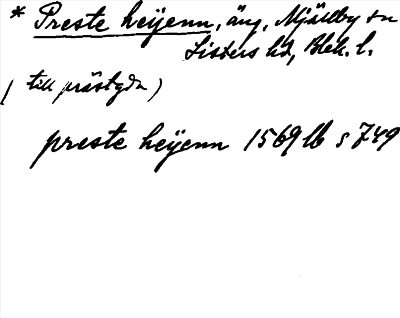 * Preste heÿenn, äng, Mjällby sn
Listers hd, Blek. l.
( till prästgdn )
preste heÿenn 1569 lb s 749